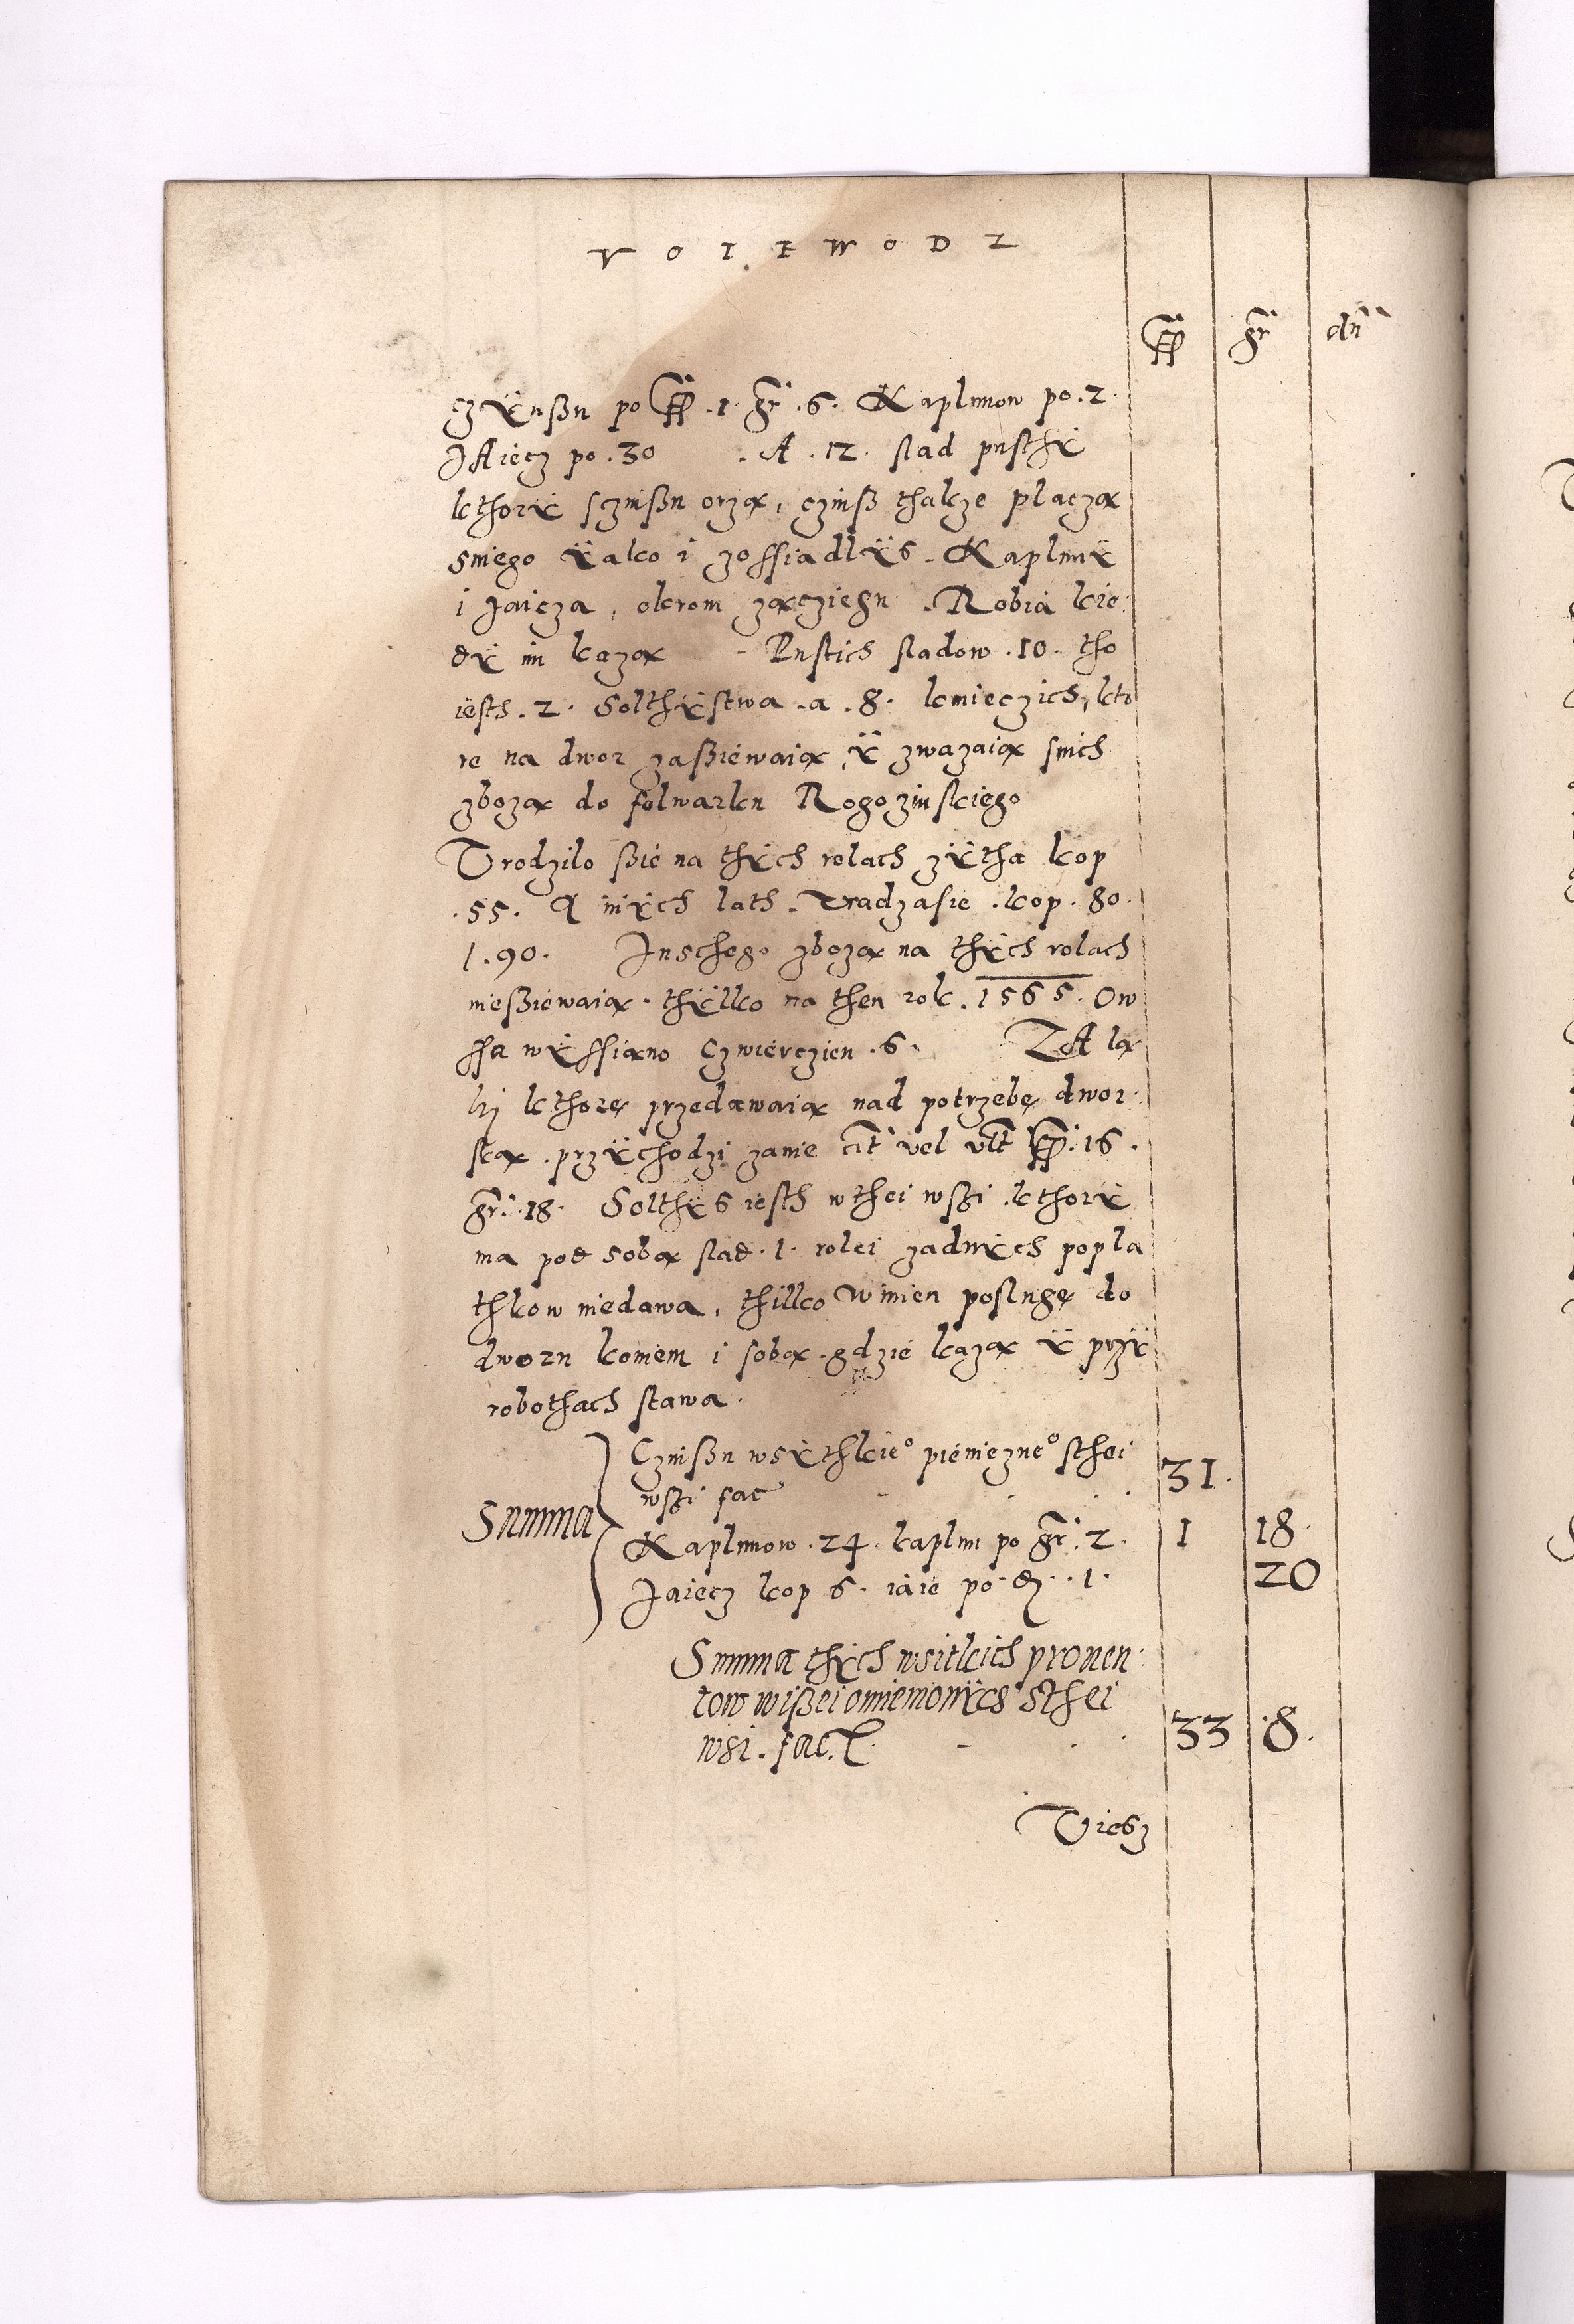 VOIEWODZ
fl gr dn
czÿnßu po fl .1. gr .6. Kaplunow po .2.
JAiecz po .30 . A .12. slad pusthÿ
kthorÿ sczinßu orzą, czinß thakze placzą
sniego ÿako i zossiadlÿs. Kaplunÿ
i Jaicza, okrom zączięgu . Robią kie:
dÿ im każą - Pustich sladow .10. tho
iesth .2. Solthÿstwa .a .8. kmieczich, kto
re na dwor zaßiewaią, ÿ zwazaią snich
zboza do folwarku Rogozinskiego
Vrodzilo ßie na thÿch rolach zÿtha kop
.55. A inÿch lath . vradzasie .kop .80.
l .90. Inschego zboza na thÿch rolach
nießiewaią . thÿlko na then rok .1565. Ow
ssa wÿssiano Czwierczien .6. ZA lą
ki kthore przedawaią nad potrzebe dwor:
ską . przÿchodzi zanie cit vel vlt fl .16.
gr .18. Solthÿs iesth wthei wßi .kthorÿ
ma pod sobą slad .1. rolei zadnÿch popla
thkow niedawa, thilko winien poslugę do
dworu koniem i sobą .gdzie każą ÿ przÿ
robothach stawa.
Summa
Czinßu wsÿthkie° pieniężne° sthei
wßi fac 31.
Kaplunow .24. kaplun po gr .2. 1 18.
Jaiecz kop 6. iaie po d .1. 20
Summa thÿch wsitkich prouen:
tow wißei omiemonÿch sthei
wsi . fac. 33 .8.
Viesz